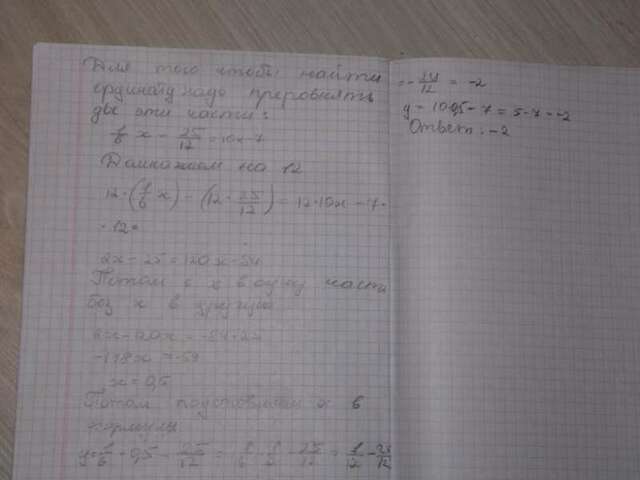 Для того чтобы найти
ординату надо преровнять
две эти части:
1/6 x - 25/12 = 10x-7
Домножаем на 12
12·(1/6 x) - (12·25/12) = 12·10x - 7·
·12
2x - 25 = 120x - 84
Потом с x в одну часть
без x в другую
2x - 120x = -84+25
-118x = -59
x = 0,5
Потом подставляем x в
формулы
y = 1/6 · 0,5 - 25/12 = 1/6 · 1/2 - 25/12 = 1/12 - 25/12
= -24/12 = -2
y = 10·0,5 - 7 = 5-7 = -2
Ответ: -2